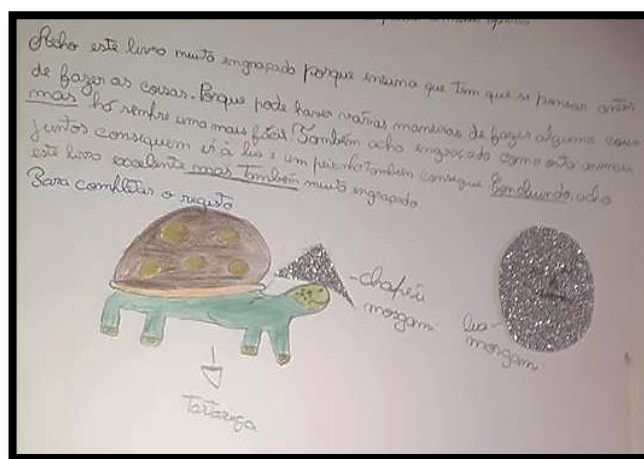 Acho este livro muito engraçado porque ensina que tem que se pensar antes
de fazer as coisas. Porque pode haver várias maneiras de fazer alguma coisa
mas há sempre uma mais fácil. Também acho engraçado como oito animais
juntos conseguem ir à lua e um peixinho também consegue. Concluindo, acho
este livro excelente mas também muito engraçado.
Para completar o registo
chapéu
morzami
lua
morzami
tartaruga